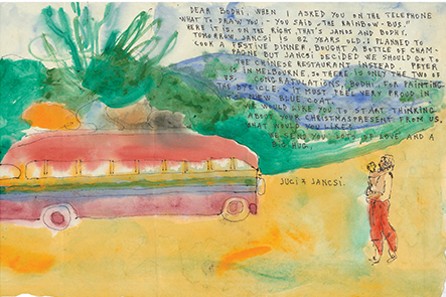 DEAR BODHI, WHEN I ASKED YOU ON THE TELEPHONE
WHAT TO DRAW YOU, - YOU SAID "THE RAINBOW-BUS."
HERE IT IS. ON THE RIGHT THAT'S JANOS AND BODHI.
TOMORROW JANCSI IS 82 YEARS OLD. I PLANNED TO
COOK A FESTIVE DINNER, BOUGHT A BOTTLE OF CHAM-
PAGNE BUT JANCSI DECIDED WE SHOULD GO TO
THE CHINESE RESTAURANT INSTEAD. PETER
IS IN MELBOURNE, SO THERE IS ONLY THE TWO OF
US. CONGRATULATIONS, BODHI, FOR PAINTING
THE BYCICLE. IT MUST FEEL VERY GOOD IN
ITS NEW BLUE COAT.
WE WOULD LIKE YOU TO START THINKING
ABOUT YOUR CHRISTMAS PRESENT FROM US.
WHAT WOULD YOU LIKE?
WE SEND YOU LOTS OF LOVE AND A
BIG HUG,
JUCI & JANCSI.